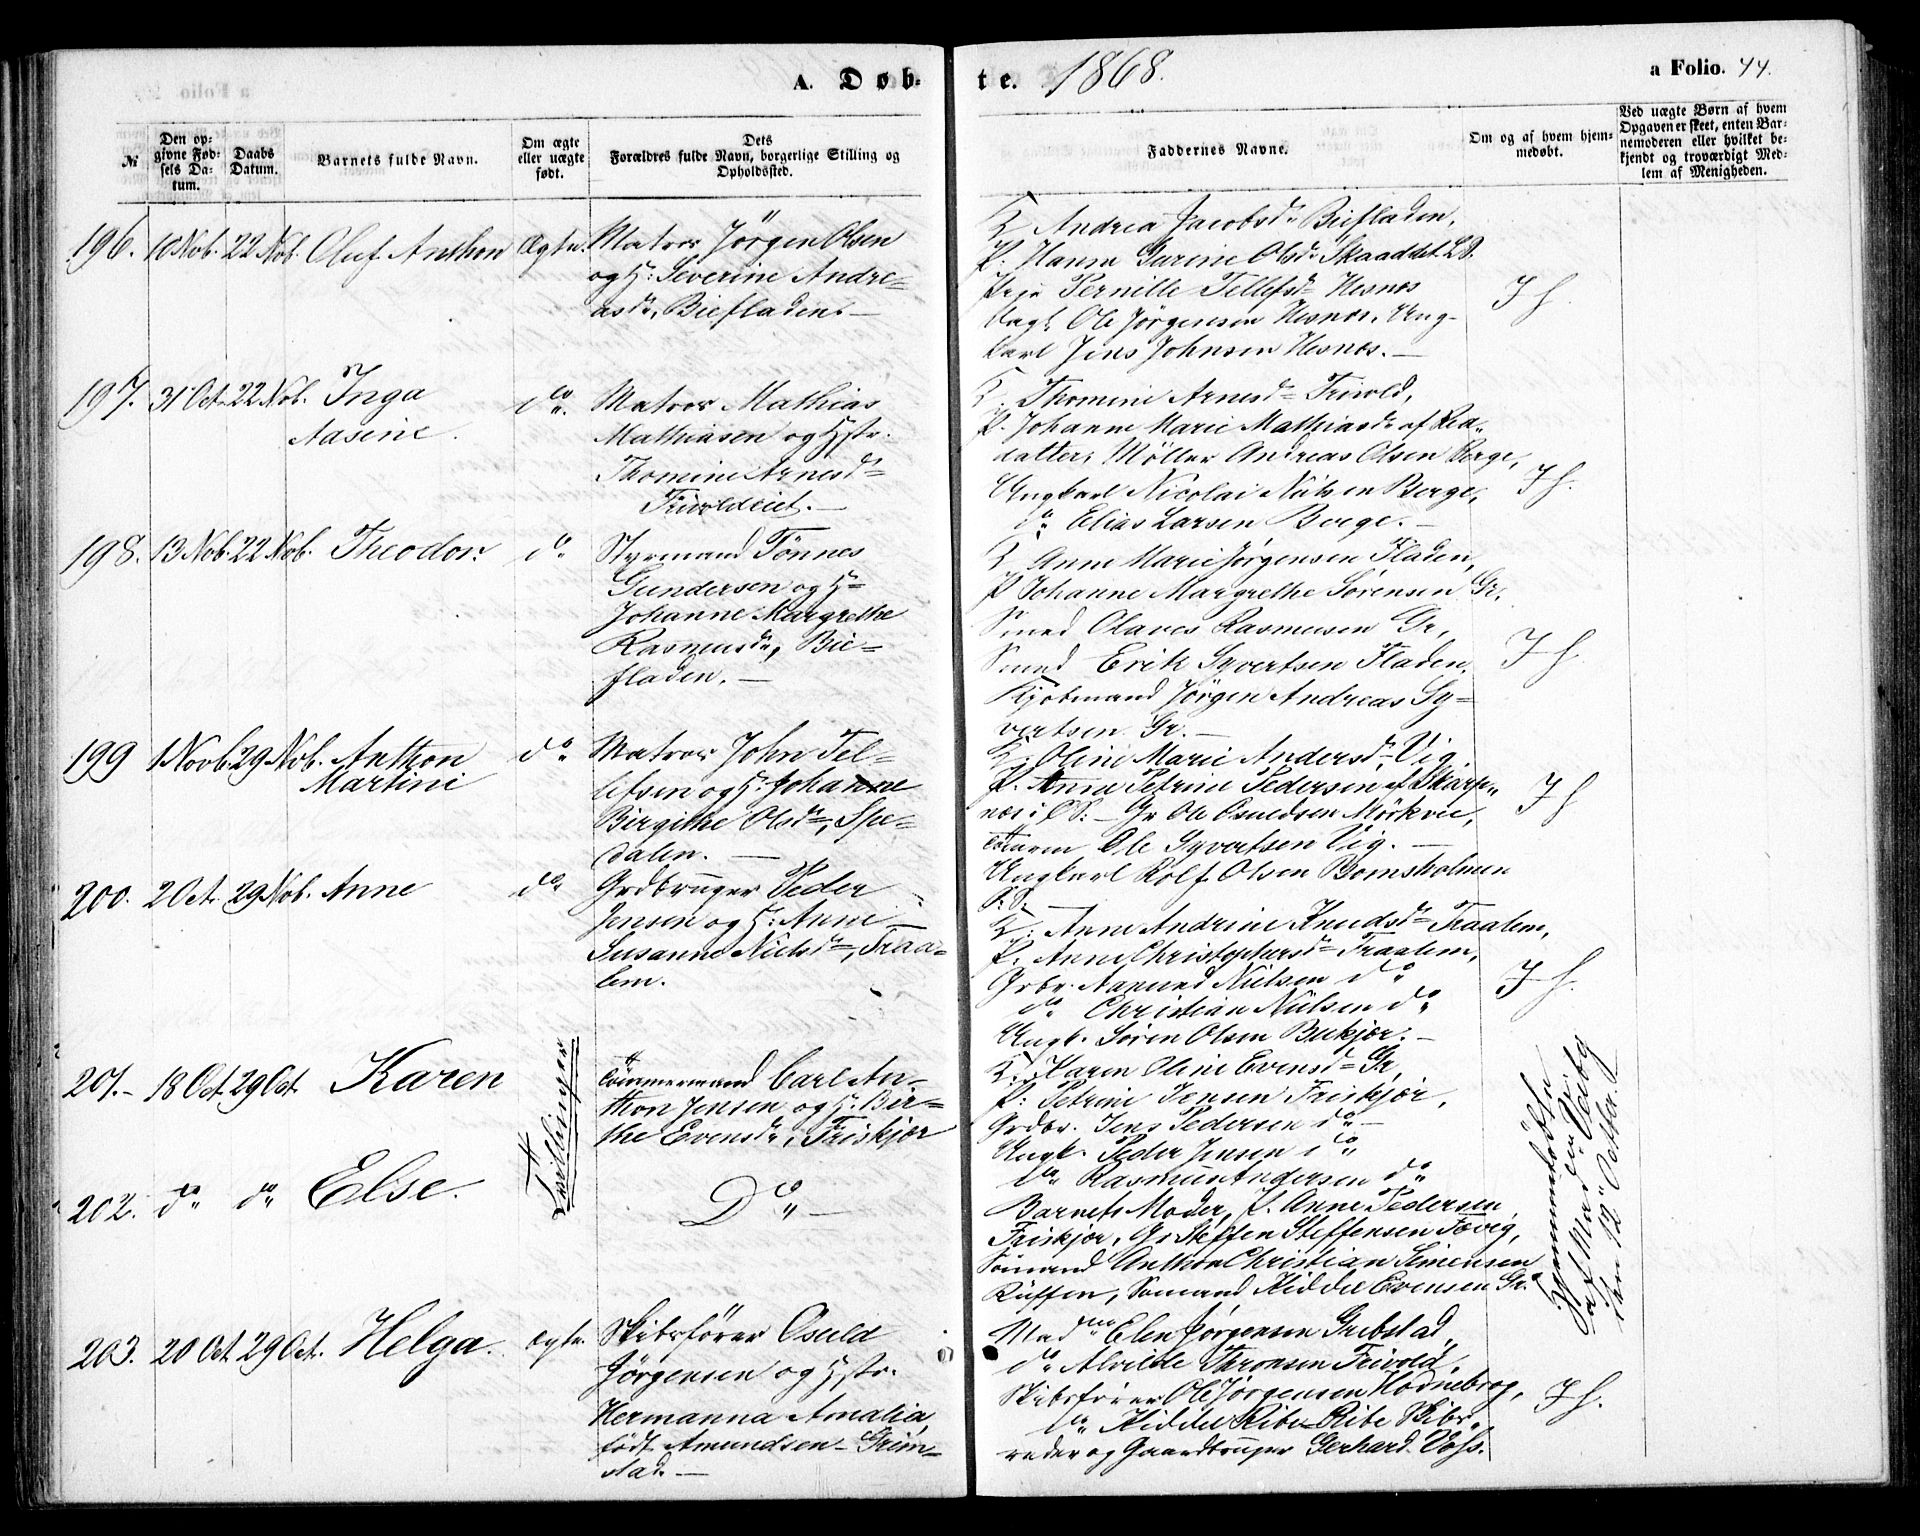 A. Døb-
te. 1868.
a Folio. 44.
№
Den op-
givne Fød-
sels Da-
tum.
Daabs
Datum.
Barnets fulde Navn.
Om ægte
eller uægte
født.
Dets
Forældres fulde Navn, borgerlige Stilling og
Opholdssted.
Faddernes Navne.
Om og af hvem hjem-
medøbt.
Ved uægte Børn af hvem
Opgaven er skeet, enten Bar-
nemoderen eller hvilket be-
kjendt og troværdigt Med-
lem af Menigheden.
196. 10 Nob. 22 Nob. Oluf Anthon Ægte. Matros Jörgen Olsen
og H: Severine Andre=
asdr, Biefladen. —
K Andrea Jacobsdr Biefladen,
P. Hanna Gurine Olsdr Skaaddet L.S.
Pige Pernille Tellefsdr Hesnes
Ungk Ole Jörgensen Hesnes, Ung-
karl Jens Johnsen Hesnes. —
J h.
197. 31 Oct. 22 Nob. Inga
Aasine.
do. Matros Mathias
Mathiasen og Hstr.
Thomine Arnesdr
Frivoldeiet. —
K. Thomine Arnesdr Frivold,
P. Johanne Marie Mathiasdr af
datter, Møller Andreas Olsen Berge,
Ungkarl Nicolai Nilsen Berge,
do Elias Larsen Berge. —
J h.
198. 13 Nob. 22 Nob. Theodor. do Styrmand Tönnes
Gundersen og H=
Johanne Margrethe
Rasmusdr, Bie=
fladen. —
K Anne Marie Jørgensen Fladen,
P Johanne Margrethe Sørensen Gr,
Smed Olaves Rasmusen Gr,
Smed Erik Syvertsen Fladen,
Kjøbmand Jörgen Andreas Sy=
vertsen Gr. —
J h.
199 1 Novb. 29 Nob. Anthon
Martini
do Matros John Tel=
lefsen og H: Johanne
Birgithe Olsdr, Spe=
dalen. —
K. Oline Marie Andersdr Vig
P. Anna Petrine Pedersen af Skarp-
næs i Ø S: — Gr Ole Osuldsen Mörkvie,
Tømm Ole Syvertsen Vig. —
Ungkarl Rolf Olsen Bomsholmen
S. S. —
J h
200. 2 Oct. 29 Nob. Anne do Grdbruger Peder
Jensen og H: Anne
Susanne Nielsdr, Traa=
lem.
K: Anne Andrine Knudsdr Traalem,
P. Anne Christophersdr Traalem,
Grbr. Aanund Nielsen do
do Christian Nielsen do
Ungk. Sören Olsen Birkjær. —
J h.
201. — 18 Oct 29 Oct. Karen
Tvillinger
Tömmermand Carl An=
thon Jensen og H: Bir=
the Evensdr, Friskjær
K. Karen Oline Evensdr Gr,
P: Petrine Jensen Friskjær,
Grdbr. Jens Pedersen do —
Ungk. Peder Jensen do
do Rasmus Andersen do
202. do do Else.
Do —
Barnets Moder, P. Anne Pedersen
Friskjær, Gr Steffen Steffensen Fævig,
Sömand Anthon Christian Simensen
Rüffen, Sömand Kiddel Evensen Gr.
Hjemmedøbte
af Mad
den 12 October
203. 20 Oct 29 Oct. Helga. Ægte. Skibsfører Osuld
Jörgensen og Hstr.
Hermanna Amalia,
födt Amundsen — Grim=
stad. —
Mad Elen Jørgensen Grebstad,
do Alvilde Thronsen Frivold,
Skibsfører Ole Jørgensen Hodnebrog,
do Kiddel Ribe Ribe Skibs-
reder og Gaardbruger Gerhard Voss.
J h.